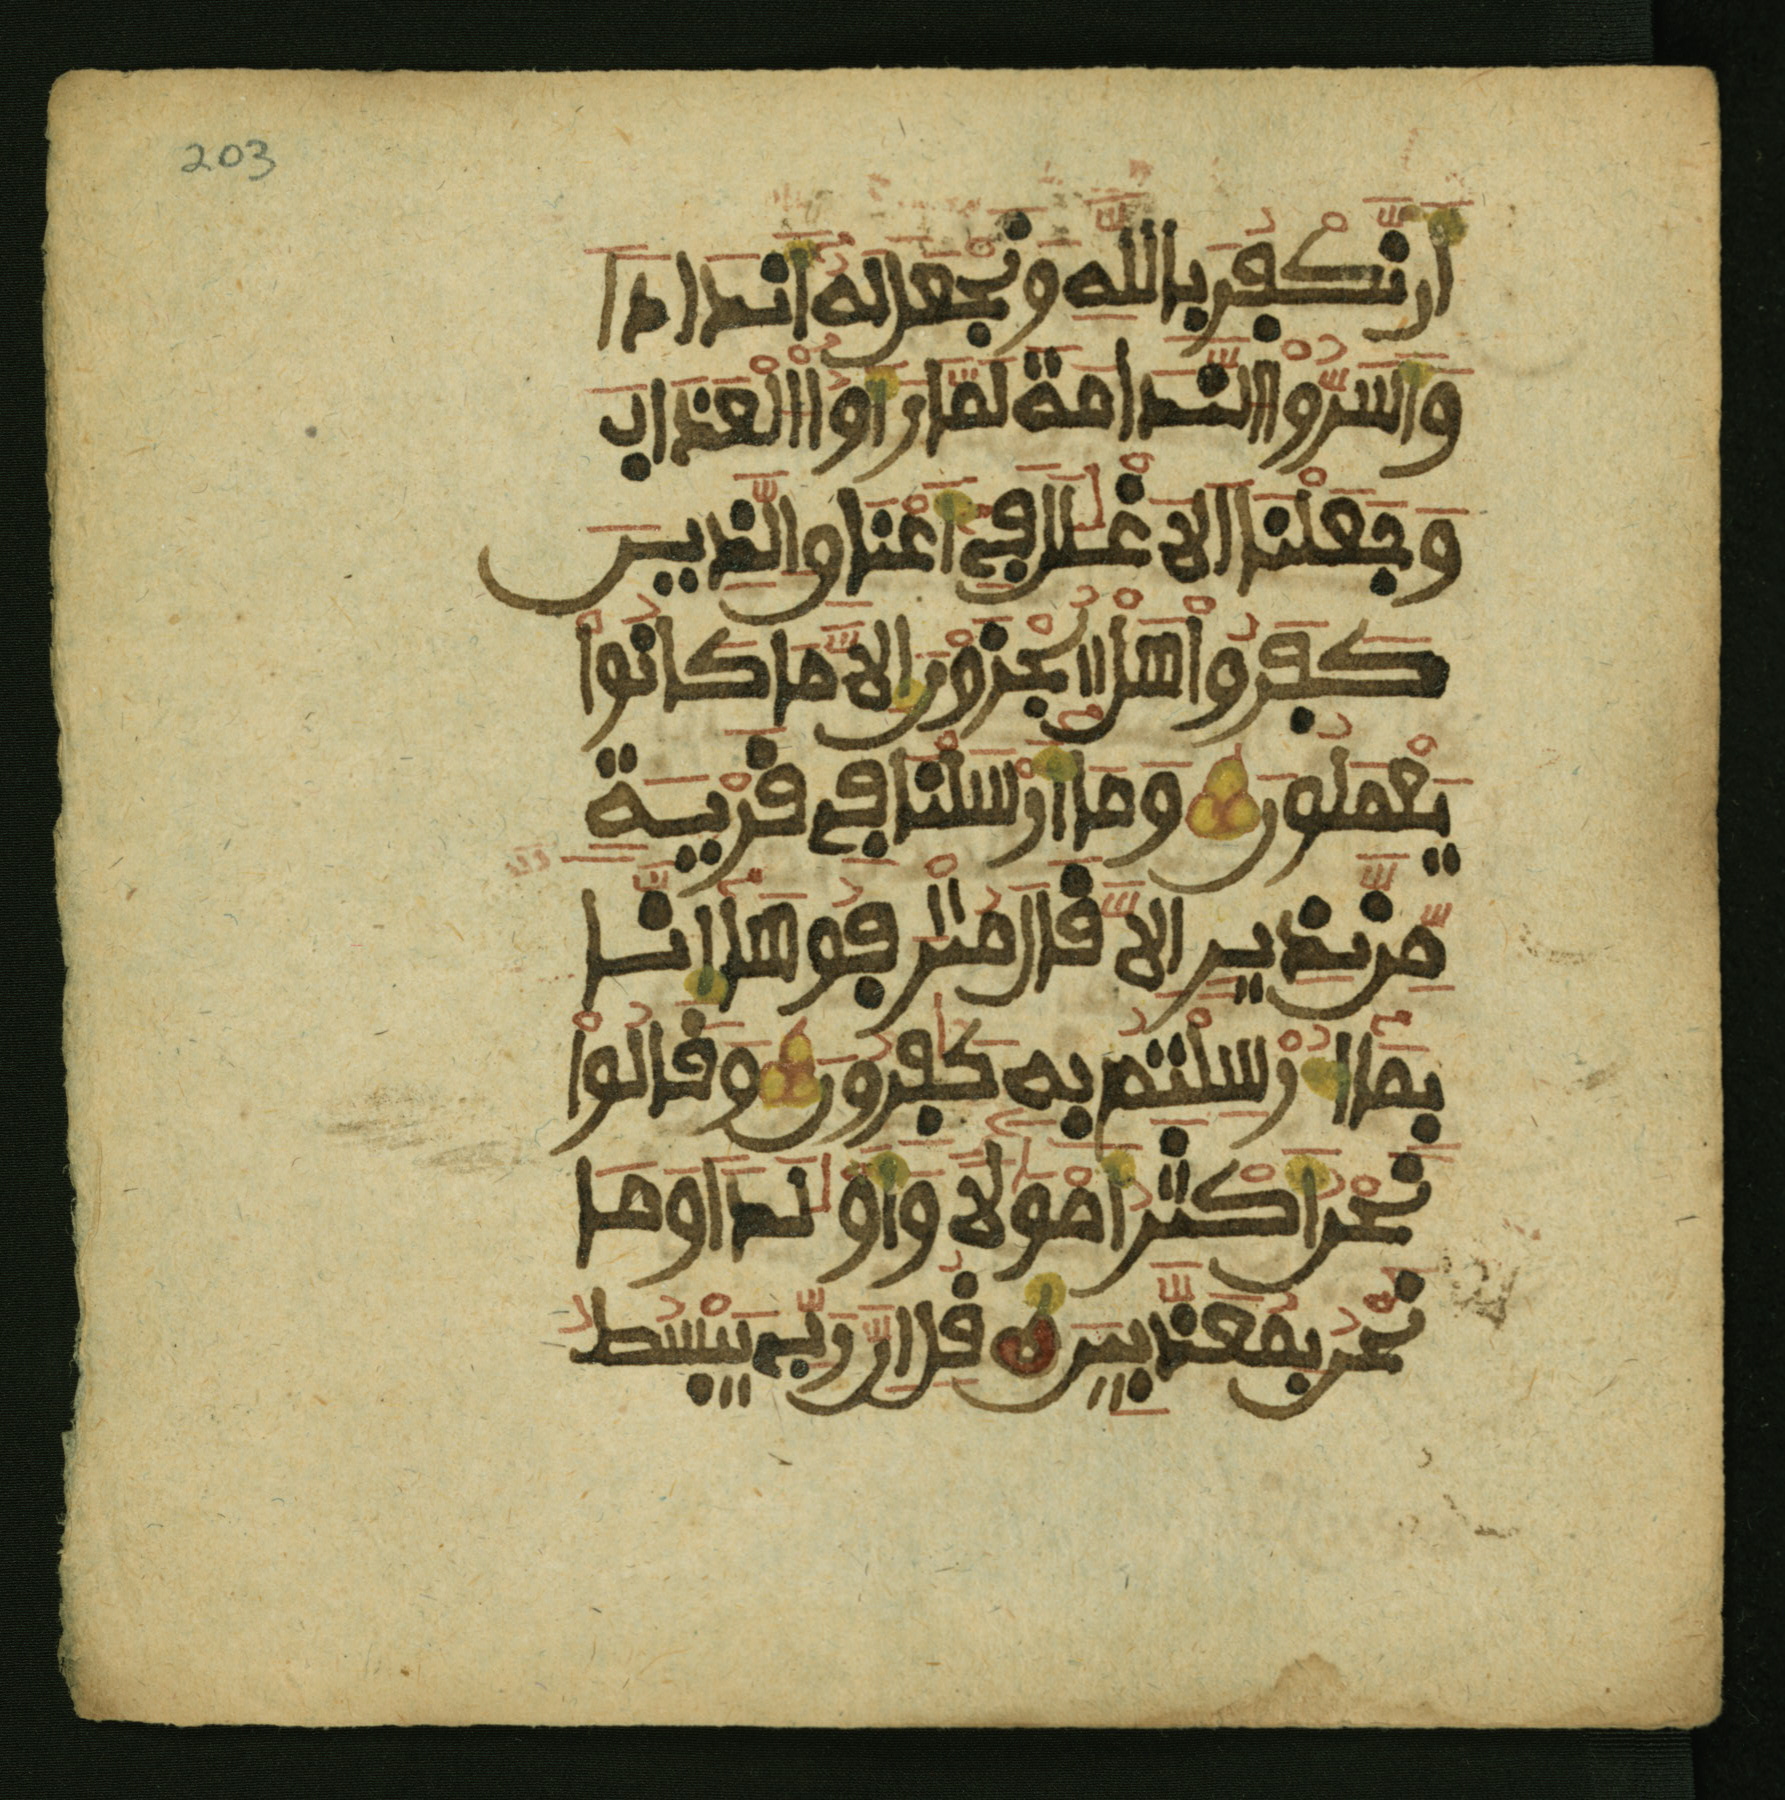 203
أَن نَّكْفُرَ بِاللَّهِ وَنَجْعَلَ لَهُ أَندَادًا
وَأَسَرُّوا النَّدَامَةَ لَمَّا رَأَوُا الْعَذَابَ
وَجَعَلْنَا الاَغْلَٰلَ فِي أَعْنَاقِ الَّذِينَ
كَفَرُوا هَلْ يُجْزَوْنَ إِلاَّ مَا كَانُوا
يَعْمَلُونَ وَمَا أَرْسَلْنَا فِي قَرْيَةٍ
مِّن نَّذِيرٍ إِلاَّ قَالَ مُتْرَفُوهَا إِنَّا
بِمَا أُرْسِلْتُم بِهِ كَٰفِرُونَ وَقَالُوا
نَحْنُ أَكْثَرُ أَمْوَٰلاً وَأَوْلَٰدًا وَمَا
نَحْنُ بِمُعَذَّبِينَ قُلْ إِنَّ رَبِّي يَبْسُطُ